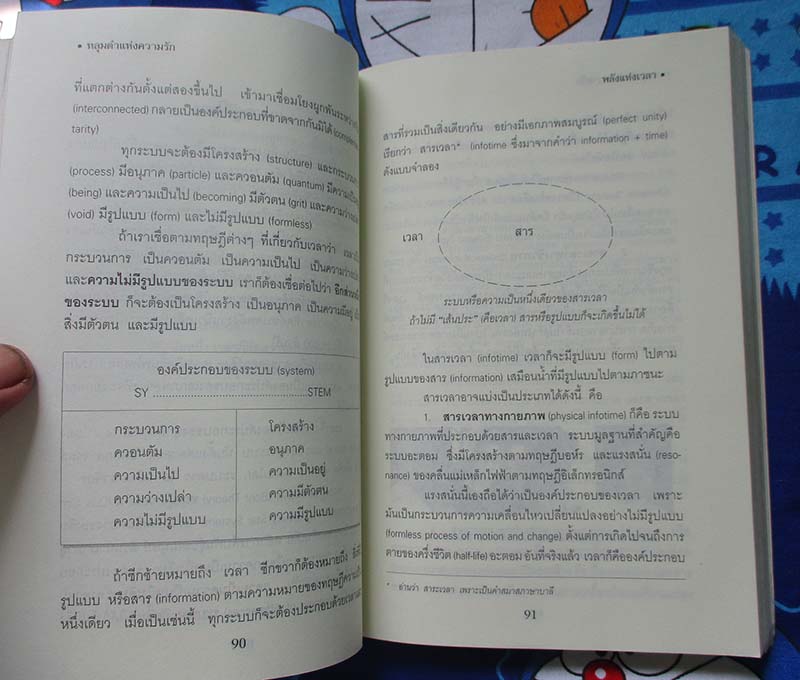 • หลุมดำแห่งความรัก
ที่แตกต่างกันตั้งแต่สองขึ้นไป เข้ามาเชื่อมโยงผูกพันระหว่าง
(interconnected) กลายเป็นองค์ประกอบที่ขาดจากกันมิได้
tarity)
ทุกระบบจะต้องมีโครงสร้าง (structure) และกระบวนการ
(process) มีอนุภาค (particle) และควอนตัม (quantum)
(being) และความเป็นไป (becoming) มีตัวตน (grit)
(void) มีรูปแบบ (form) และไม่มีรูปแบบ (formless)
ถ้าเราเชื่อตามทฤษฎีต่างๆ ที่เกี่ยวกับเวลาว่า
กระบวนการ เป็นควอนตัม เป็นความเป็นไป
และความไม่มีรูปแบบของระบบ เราก็ต้องเชื่อต่อไปว่า
ของระบบ ก็จะต้องเป็นโครงสร้าง เป็นอนุภาค เป็นความมีอยู่
สิ่งมีตัวตน และมีรูปแบบ
องค์ประกอบของระบบ (system)
SY ..........................................STEM
กระบวนการ โครงสร้าง
ควอนตัม อนุภาค
ความเป็นไป ความเป็นอยู่
ความว่างเปล่า ความมีตัวตน
ความไม่มีรูปแบบ ความมีรูปแบบ
ถ้าซีกซ้ายหมายถึง เวลา ซีกขวาก็ต้องหมายถึง
รูปแบบ หรือสาร (information) ตามความหมายของทฤษฎี
หนึ่งเดียว เมื่อเป็นเช่นนี้ ทุกระบบก็จะต้องประกอบด้วย
90
พลังแห่งเวลา •
สารที่รวมเป็นสิ่งเดียวกัน อย่างมีเอกภาพสมบูรณ์ (perfect unity)
เรียกว่า สารเวลา* (infotime ซึ่งมาจากคำว่า information + time)
ดังแบบจำลอง
เวลา สาร
ระบบหรือความเป็นหนึ่งเดียวของสารเวลา
ถ้าไม่มี “เส้นประ” (คือเวลา) สารหรือรูปแบบก็จะเกิดขึ้นไม่ได้
ในสารเวลา (infotime) เวลาก็จะมีรูปแบบ (form) ไปตาม
รูปแบบของสาร (information) เสมือนน้ำที่มีรูปแบบไปตามภาชนะ
สารเวลาอาจแบ่งเป็นประเภทได้ดังนี้ คือ
1. สารเวลาทางกายภาพ (physical infotime) ก็คือ ระบบ
ทางกายภาพที่ประกอบด้วยสารและเวลา ระบบมูลฐานที่สำคัญคือ
ระบบอะตอม ซึ่งมีโครงสร้างตามทฤษฎีบอห์ร และแรงสนั่น (reso-
nance) ของคลื่นแม่เหล็กไฟฟ้าตามทฤษฎีอิเล็กทรอนิกส์
แรงสนั่นนี้เองถือได้ว่าเป็นองค์ประกอบของเวลา เพราะ
มันเป็นกระบวนการความเคลื่อนไหวเปลี่ยนแปลงอย่างไม่มีรูปแบบ
(formless process of motion and change) ตั้งแต่การเกิดไปจนถึงการ
ตายของครึ่งชีวิต (half-life) อะตอม อันที่จริงแล้ว เวลาก็คือองค์ประกอบ
* อ่านว่า สาระเวลา เพราะเป็นคำสมาสภาษาบาลี
91